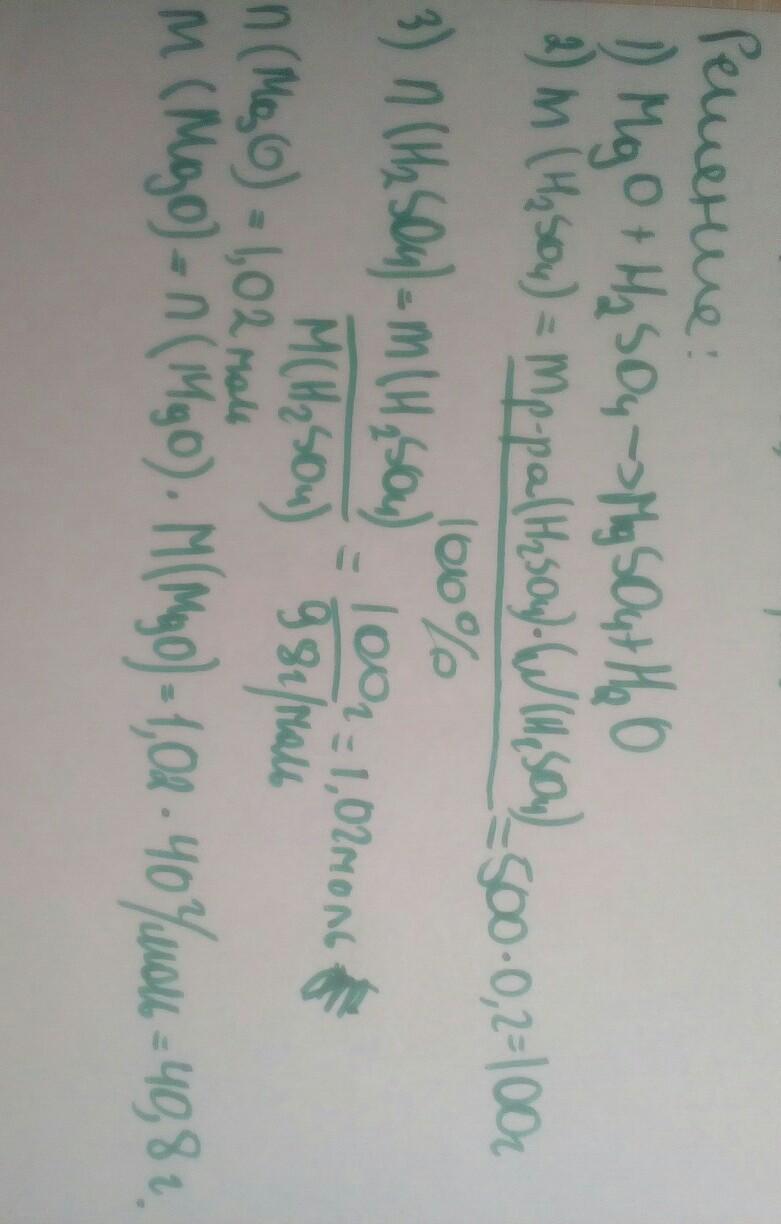 Решение:
1) MgO + H2SO4 -> MgSO4 + H2O
2) m (H2SO4) = mр-ра(H2SO4)·W(H2SO4) = 500·0,2 = 100г
100%
3) n (H2SO4) = m(H2SO4) = 100г = 1,02 моль
M(H2SO4) 98г/моль
n(MgO) = 1,02 моль
m (MgO) = n (MgO) · M(MgO) = 1,02 · 40 г/моль = 40,8 г.